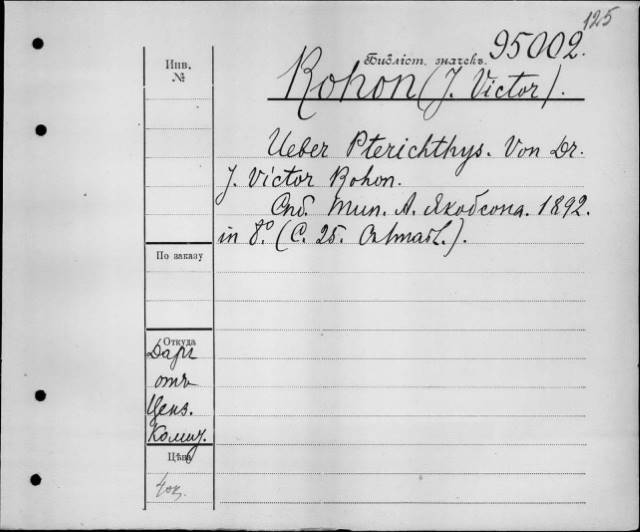 125
95002.
Инв.
№
Библіот. значекъ.
Rohon (J. Victor).
Ueber Pterichthys. Von Dr.
J. Victor Rohon.
Спб. Тип. А. Якобсона. 1892.
in 8º. (С. 25.
По заказу
Откуда
Даръ
отъ
Ценз.
Комит.
Цѣна